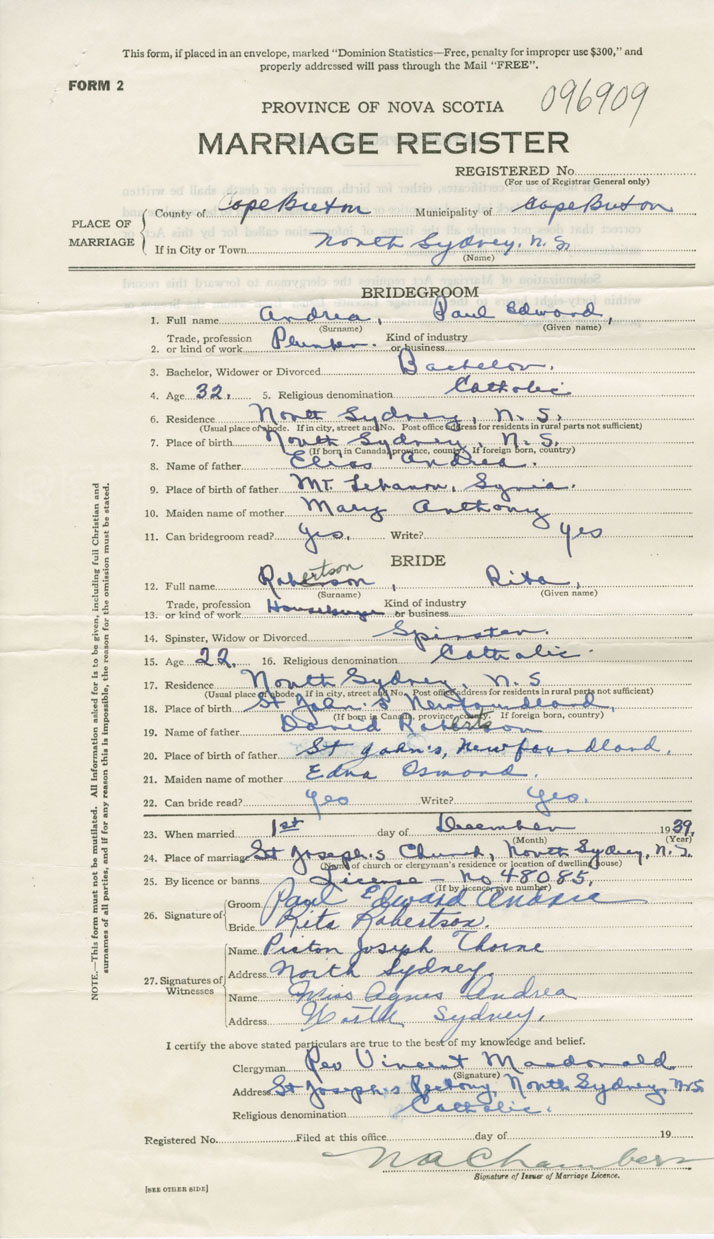 This form, if placed in an envelope, marked "Dominion Statistics—Free, penalty for improper use $300," and
properly addressed will pass through the Mail "FREE".
FORM 2
096909
PROVINCE OF NOVA SCOTIA
MARRIAGE REGISTER
REGISTERED No.
(For use of Registrar General only)
PLACE OF MARRIAGE
County of Cape Breton Municipality of Cape Breton
If in City or Town North Sydney, N.S.
(Name)
BRIDEGROOM
1. Full name Andrea, Paul Edward,
(Surname) (Given name)
2. Trade, profession or kind of work Plumber. Kind of industry or business
3. Bachelor, Widower or Divorced Bachelor.
4. Age 32. 5. Religious denomination Catholic
6. Residence North Sydney, N. S.
(Usual place of abode. If in city, street and No. Post office address for residents in rural parts not sufficient)
7. Place of birth North Sydney, N. S.
(If born in Canada, province, county. If foreign born, country)
8. Name of father Elias Andrea.
9. Place of birth of father Mt. Lebanon, Syria.
10. Maiden name of mother Mary Anthony
11. Can bridegroom read? Yes. Write? Yes
BRIDE
12. Full name Robertson, Rita,
(Surname) (Given name)
13. Trade, profession or kind of work Kind of industry or business
14. Spinster, Widow or Divorced Spinster.
15. Age 22. 16. Religious denomination Catholic.
17. Residence North Sydney, N. S
(Usual place of abode. If in city, street and No. Post office address for residents in rural parts not sufficient)
18. Place of birth St John's Newfoundland,
(If born in Canada, province, county. If foreign born, country)
19. Name of father David Robertson
20. Place of birth of father St John's, Newfoundland.
21. Maiden name of mother Edna Osmond.
22. Can bride read? Yes Write? Yes.
23. When married 1st day of December 1939.
(Month) (Year)
24. Place of marriage St Joseph's Church, North Sydney, N.S.
(Name of church or clergyman's residence or location of dwelling house)
25. By licence or banns License - No 48085.
(If by licence give number)
26. Signature of
Groom Paul Edward Andrea
Bride Rita Robertson.
27. Signatures of Witnesses
Name Joseph Thorne
Address North Sydney.
Name Miss Agnes Andrea
Address North Sydney.
I certify the above stated particulars are true to the best of my knowledge and belief.
Clergyman Rev Vincent Macdonald
(Signature)
Address St Joseph's Rectory, North Sydney, N.S.
Religious denomination Catholic.
Registered No. Filed at this office day of 19
N A Chambers
Signature of Issuer of Marriage Licence.
[SEE OTHER SIDE]
NOTE.—This form must not be mutilated. All information asked for is to be given, including full Christian and
surnames of all parties, and if for any reason this is impossible, the reason for the omission must be stated.